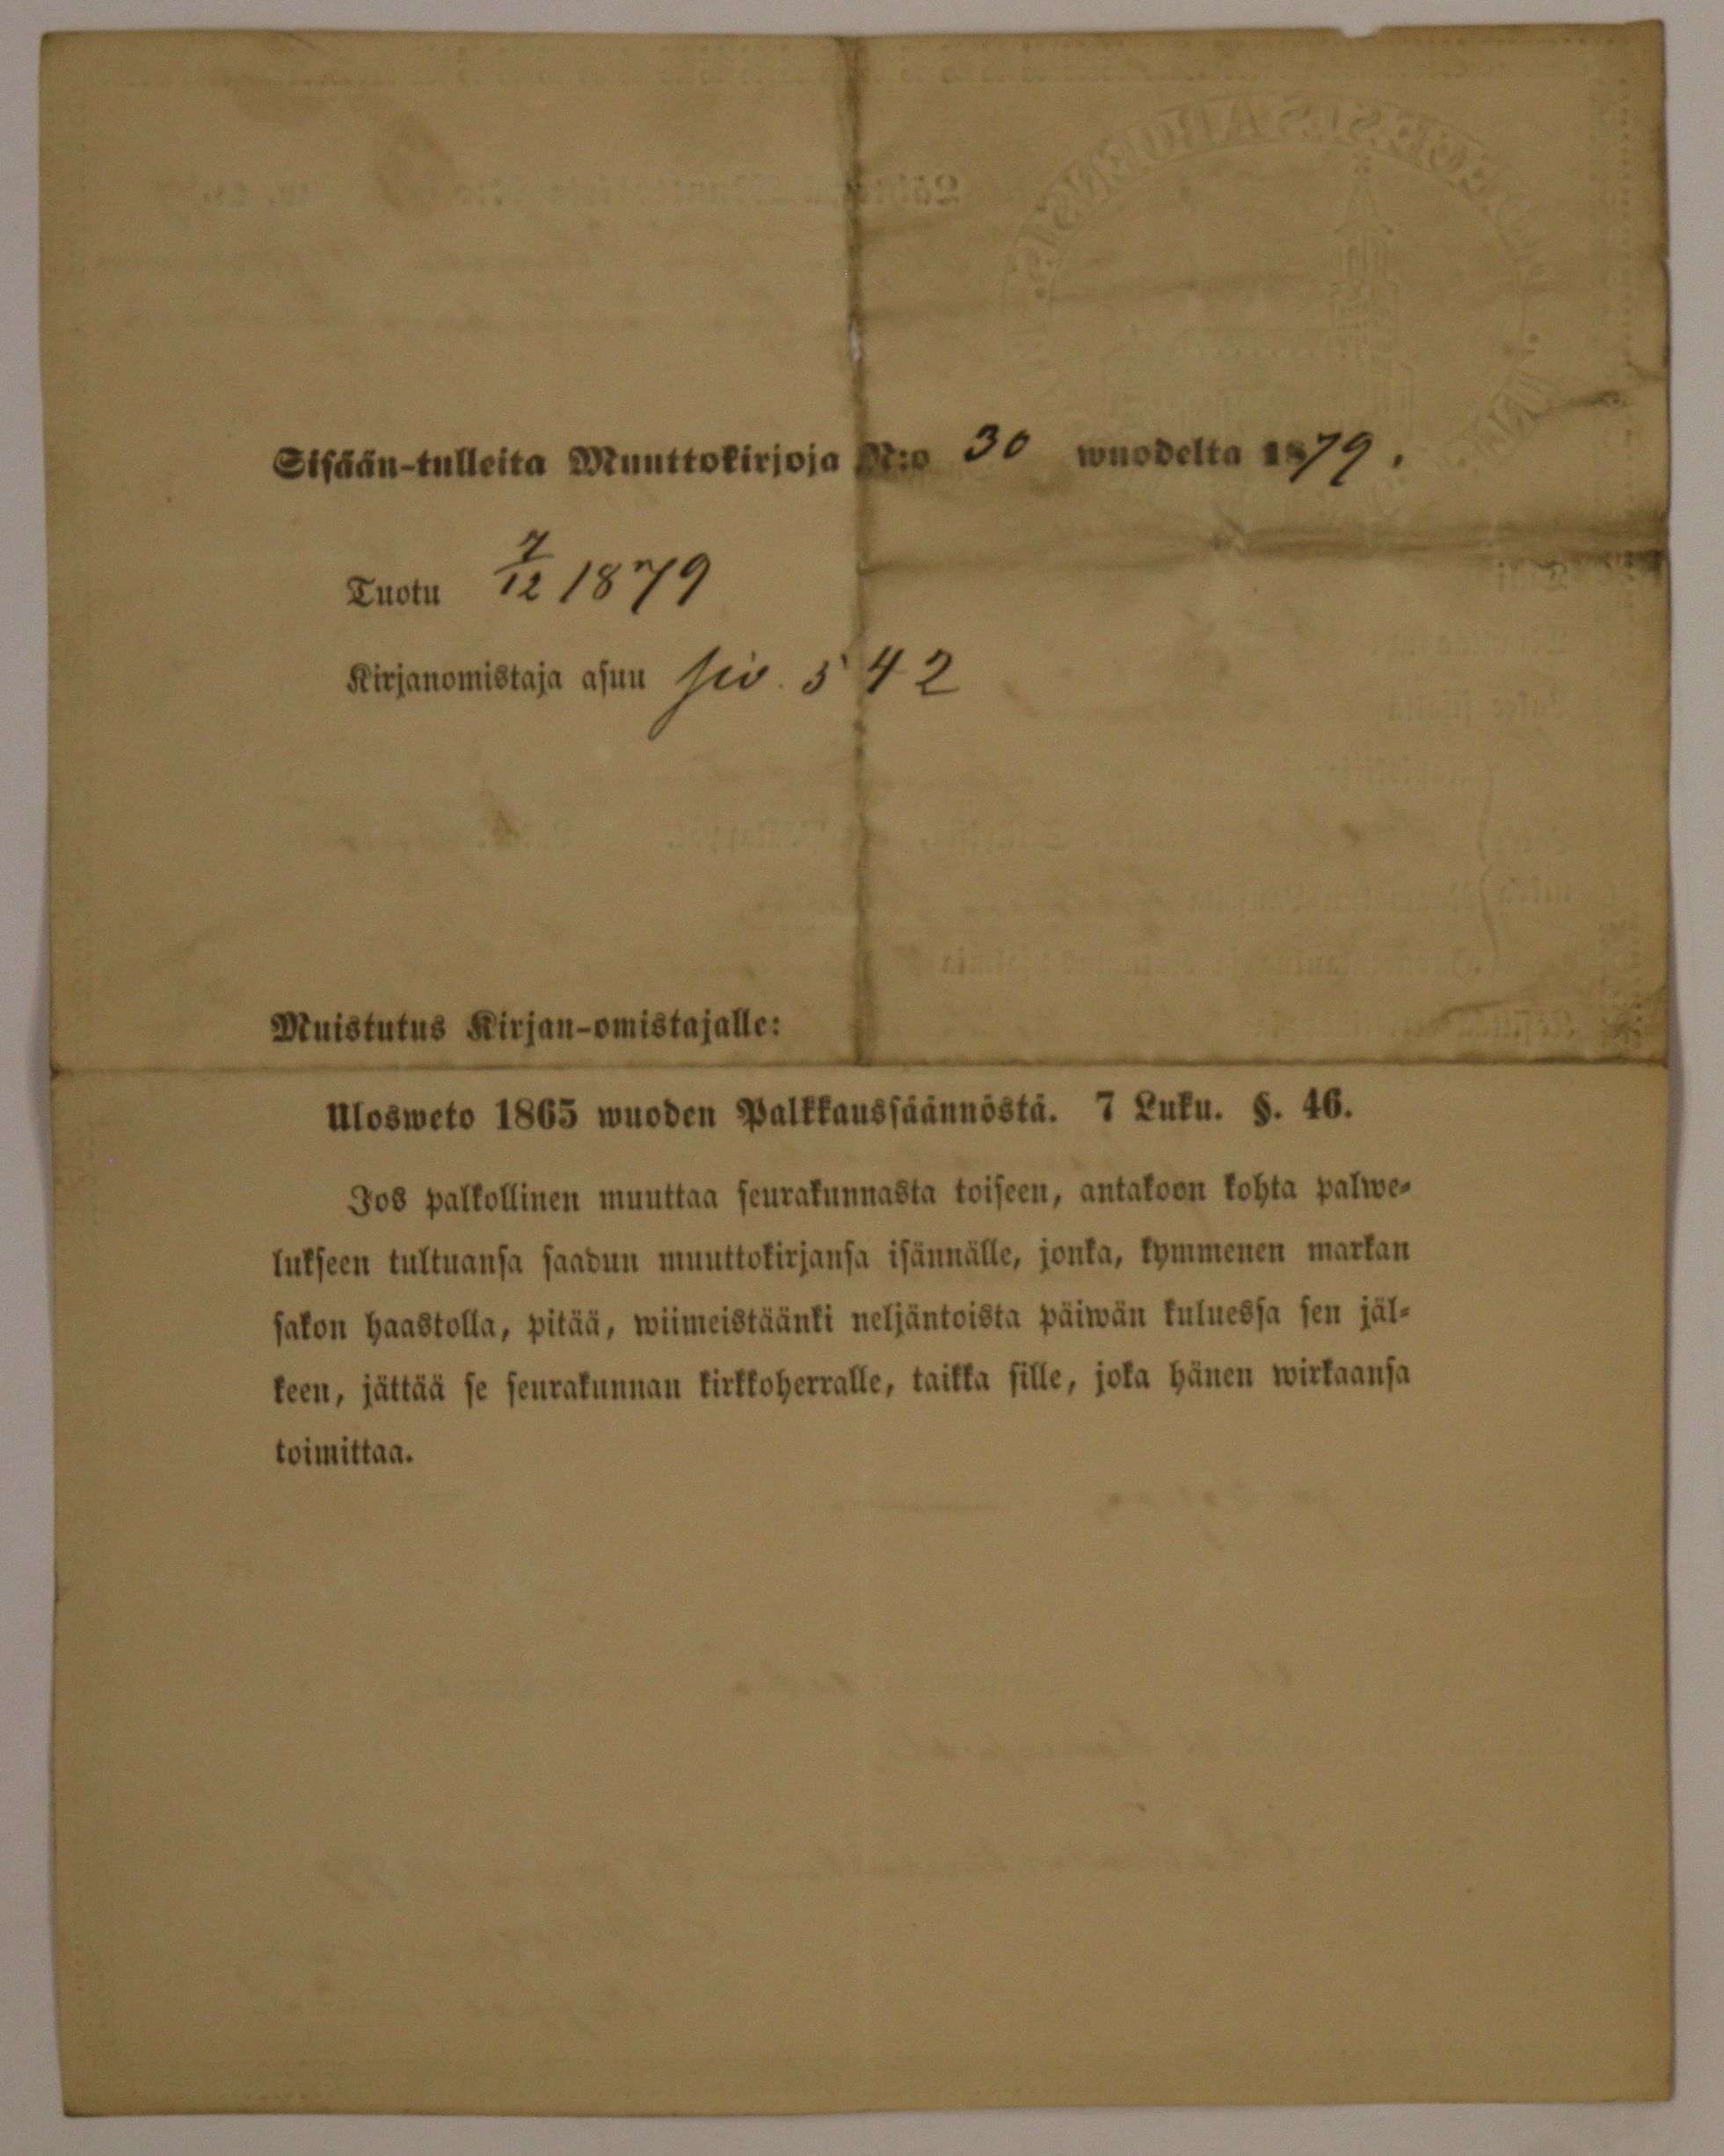 Sisään-tulleita Muuttokirjoja N:o 30 wuodelta 1879.
Tuotu 7/12 1879
Kirjanomistaja asuu siv. 542
Muistutus Kirjan-omistajalle:
Ulosweto 1865 wuoden Palkkaussäännöstä. 7 Luku. §. 46.
Jos palkollinen muuttaa seurakunnasta toiseen, antakoon kohta palwe-
lukseen tultuansa saadun muuttokirjansa isännälle, jonka, kymmenen markan
sakon haastolla, pitää, wiimeistäänki neljäntoista päiwän kuluessa sen jäl-
keen, jättää se seurakunnan kirkkoherralle, taikka sille, joka hänen wirkaansa
toimittaa.